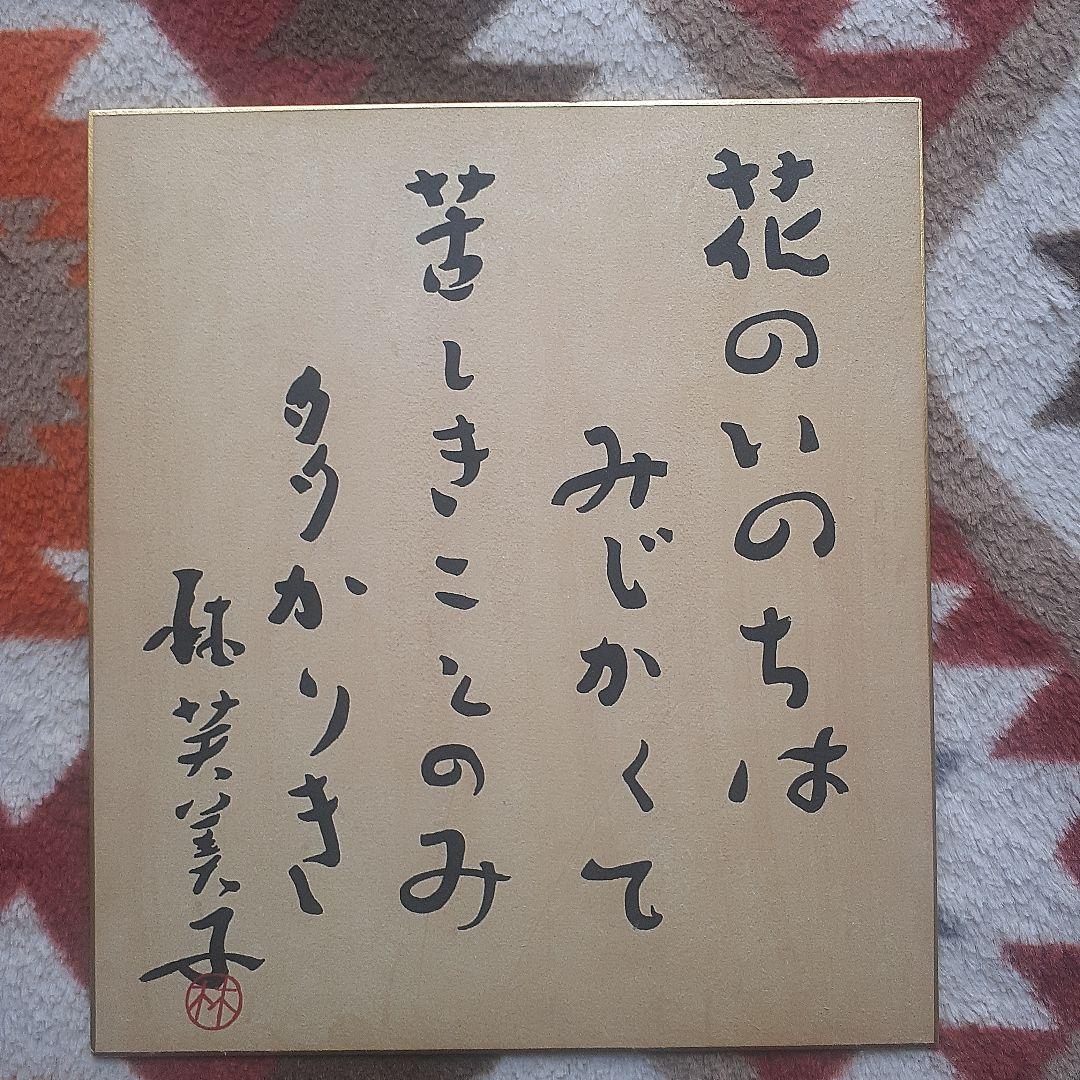 花のいのちは
みじかくて
苦しきことのみ
多かりき
林芙美子
林